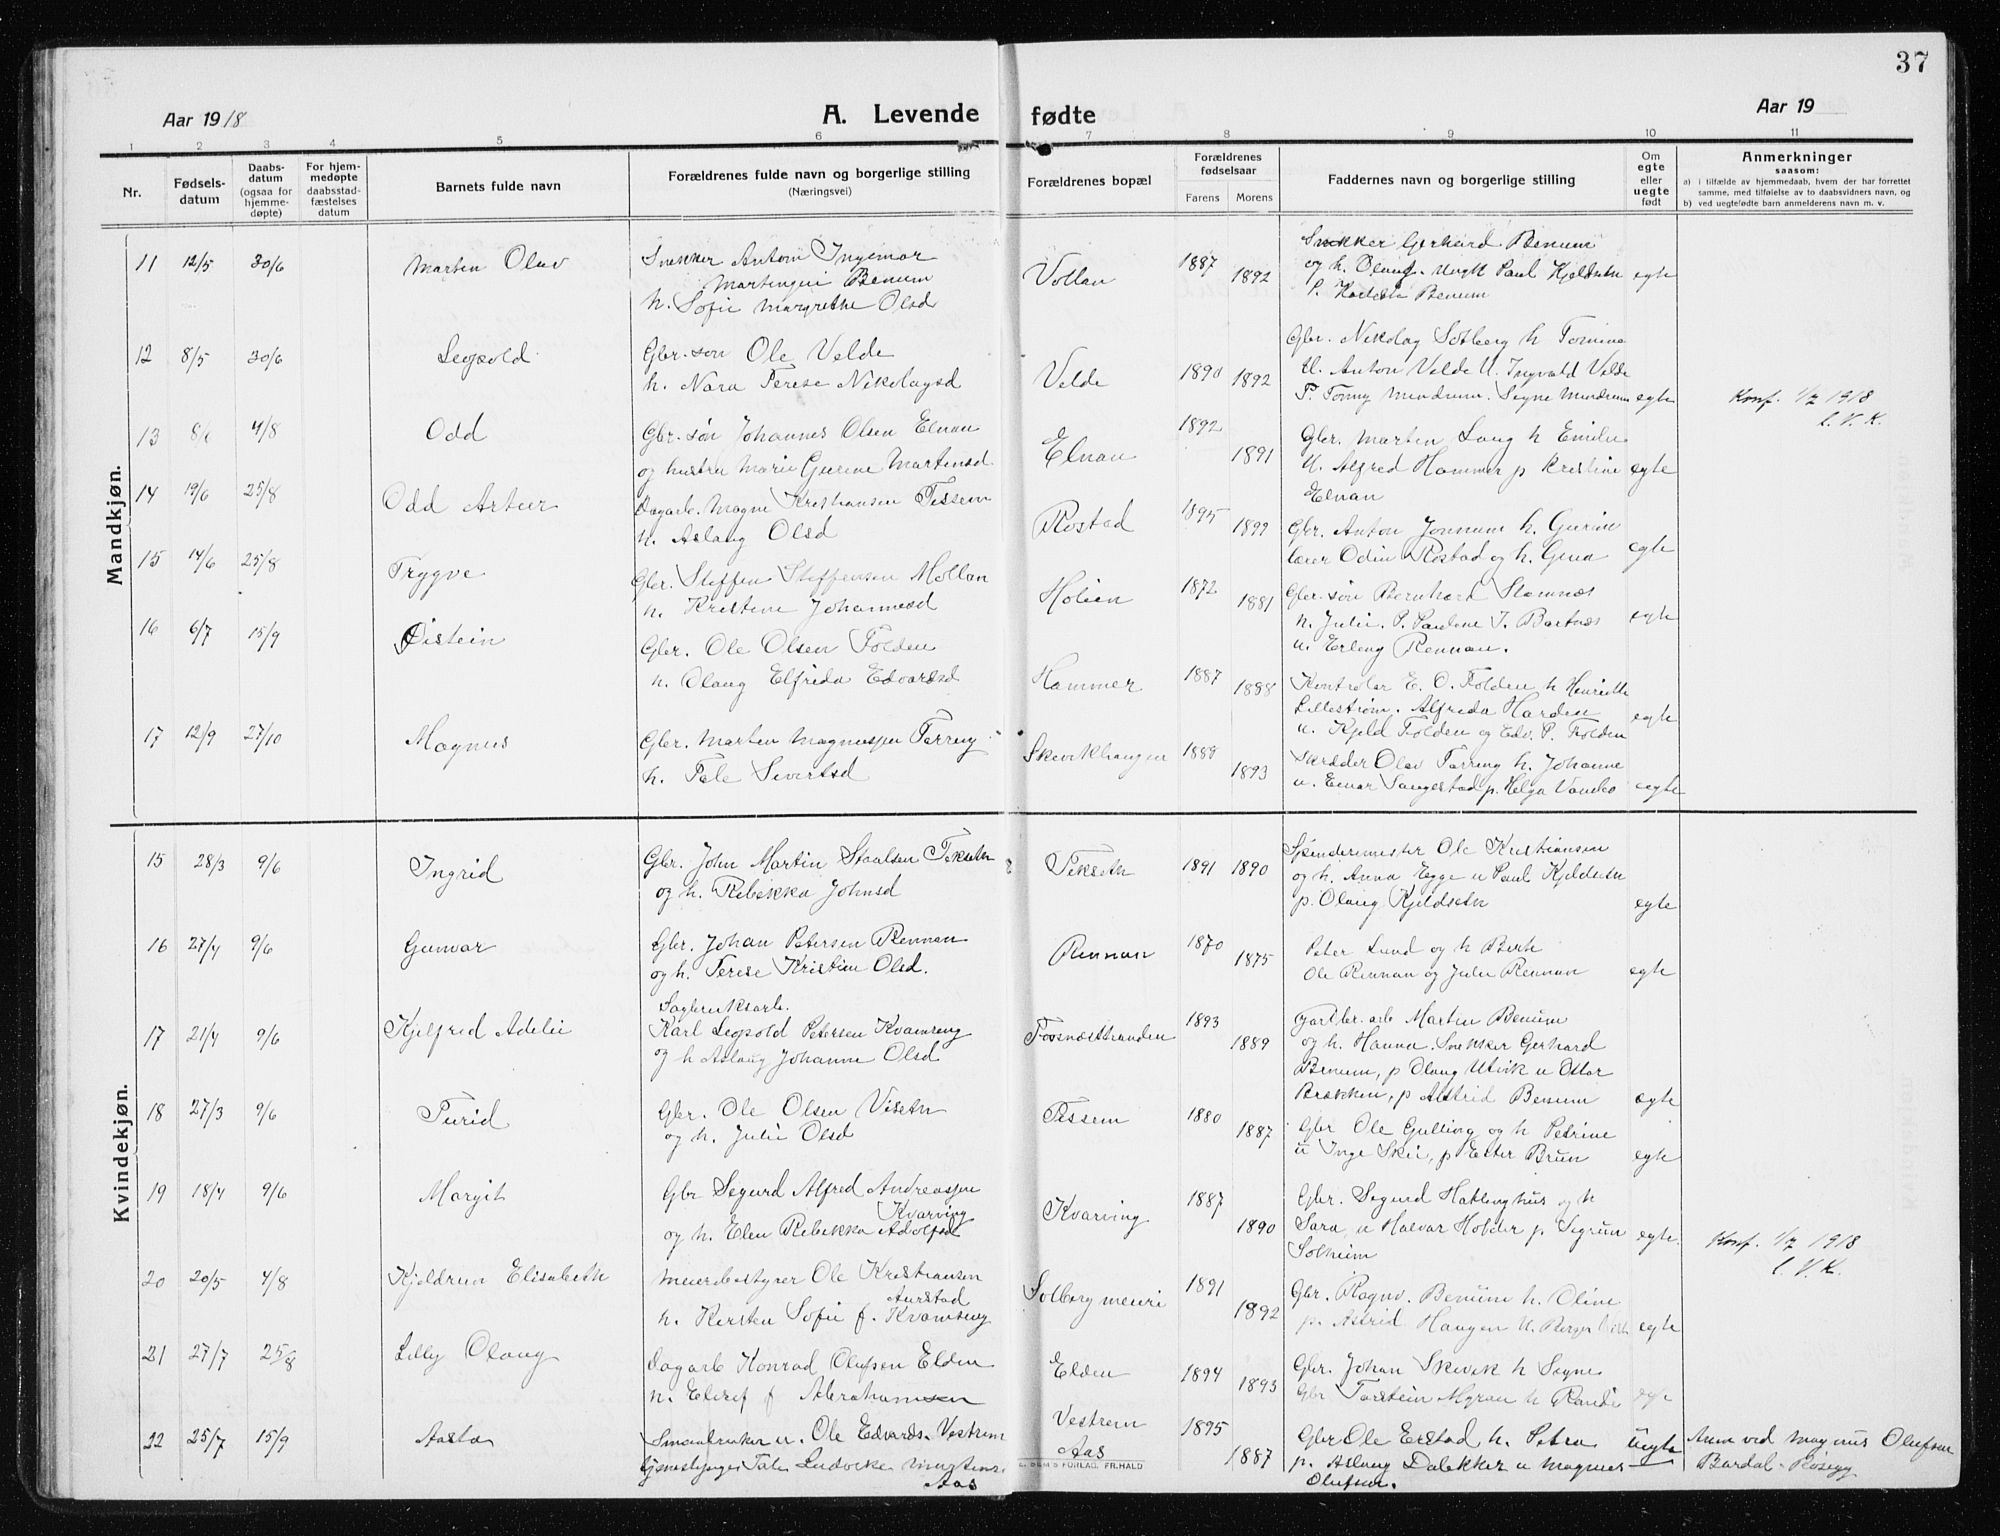 37
Aar 1918
A. Levende fødte
Aar 19
1 2 3 4 5 6 7 8 9 10 11
Nr.
Fødsels-
datum
Daabs-
datum
(ogsaa for
hjemme-
døpte)
For hjem-
medøpte
daabsstad-
fæstelses
datum
Barnets fulde navn
Forældrenes fulde navn og borgerlige stilling
(Næringsvei)
Forældrenes bopæl
Forældrenes
fødselsaar
Farens Morens
Faddernes navn og borgerlige stilling
Om
egte
eller
uegte
født
Anmerkninger
saasom:
a) i tilfælde av hjemmedaab, hvem der har forrettet
samme, med tilføielse av to daabsvidners navn, og
b) ved uegtefødte barn anmelderens navn m. v.
Mandkjøn.
11 12/5 30/6 Marten Olav
Snekker Anton Ingemar
Martinsen Benum
h. Sofie Margrethe Olsd
Vollan 1887 1892
Snekker Gerhard Benum
og h. Olaug. Ungk Paul Kjeldseth
P. Benum
egte
12 8/5 30/6 Leopold
Gbr. søn Ole Velde
h. Nara Terese Nikolaysd
Velde 1890 1892
Gbr. Nikolay Solberg h
U. Anton Velde U. Ingvald Velde
P. Tonny Mendrum. Signe Mendrum egte
Konf. 1/7 1918
l. V. K.
13 4/8 Odd
Gbr. søn Johannes Olsen Elnan
og hustru Marie Gurine Martinsd
Elnan 1892 1891
Gbr. Marten Lang h Emilie
U. Alfred Hammer p Kristine
Elnan
egte
14 19/6 25/8 Odd Artur
Dagarb. Magne Kristiansen Tessem
h. Aslaug Olsd
Rostad 1895 1899
Gbr. Anton Jonnum h. Gurine
lærer Odin Rostad og h. Gina
egte
15 14/6 25/8 Trygve
Gbr. Steffen Steffensen Mollan
h. Kristine Johannesd
Holien 1872 1881
Gbr søn Bernhard Stamnes
h. Julie. P. Pauline J. Bartnes
u. Erling Rennan.
egte
16 6/7 15/9 Øistein
Gbr. Ole Olsen Folden
h. Olaug Elfrida Edvardsd
Hammer 1887 1888
Kontrolør E. O. Folden h Henriette
Lillestrøm. Alfreda Harden
u. Kjeld Folden og Edv. P. Folden
egte
17 12/9 27/10 Magnus
Gbr. Marten Magnussen Tarreng
h. Tale Sivertsd
Skevikhaugen 1888 1893
Skrædder Olav Tarreng h. Johanne
u. Einar Langestad p. Helga Vandbo
egte
Kvindekjøn.
15 28/3 9/6 Ingrid
Gbr. John Martin Staalsen Tekseth
og h. Rebekka Johnsd
Tekseth 1891 1890
Spinderimester Ole Kristiansen
og h. Anna Hegge u Paul Kjeldseth
p. Olaug Kjeldseth
egte
16 27/4 9/6 Gunvor
Gbr. Johan Petersen Rennan
og h. Terese Kristine Olsd.
Rennan 1870 1875
Peter Lund og h Berte
Ole Rennan og Julie Rennan
egte
17 21/4 9/6 Kjelfred Adelie
Sagbruksarb.
Karl Leopold Petersen Kvamseng
og h Aslaug Johanne Olsd
Fosnæsstranden 1893 1889
Gartbr. arb Martin Benum
og h. Hanna. Snekker Gerhard
Benum, p Olaug Utvik u Ottar
Brækken, p Astrid Benum
egte
18 27/3 9/6 Turid
Gbr. Ole Olsen Viseth
og h. Julie Olsd
Tessem 1880 1887
Gbr Ole Gulling og h Petrine
u Inge Skie, p Ester Brun
egte
19 18/4 9/6 Margit
Gbr Sigurd Alfred Andreassen
Kvarving
og h. Elen Rebekka Adolfsd
Kvarving 1887 1890
Gbr. Sigurd Hatlinghus og h
Sara, u Halvar Holder p Sigrun
Solheim
egte.
Konf. 1/7 1918
l. V. K.
20 20/5 4/8 Kjeldrun Elisabeth
Meieribestyrer Ole Kristiansen
Aurstad
h. Kirsten Sofie f. Kvamseng
Solberg meieri 1891 1892
Gbr. Ragnv. Benum h. Oline
p. Astrid Haugen U.
egte
21 27/7 25/8 Lilly Olaug
Dagarb Konrad Olufsen Elden
h. Eliref f Abrahamsen
Elden 1894 1893
Gbr. Johan Skevik h Signe
Gbr Torstein Myran h Randi
22 25/7 15/9 Aasta
Smaabruker u. Ole Edvards. Vestrem
tjenestepige Tale Ludvikke
Aas
Vestrem
Aas
1895 1887
Gbr Ole Eistad h. Petra
p. Aslaug Dalekker u Magnus
Olufsen.
uegte
Anm ved Magnus Olufsen
Bardal - Røsegg
SEM'S FORLAG, FR.HALD